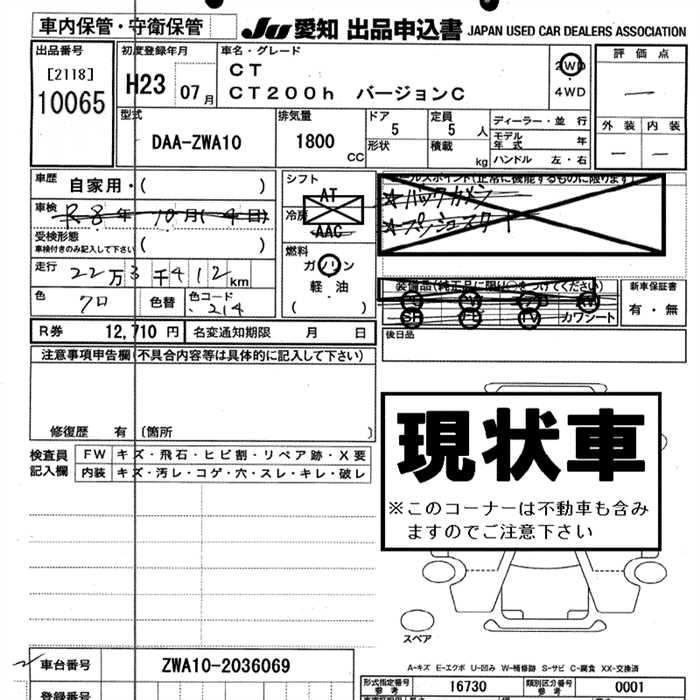 車内保管・守衛保管
JU 愛知 出品申込書 JAPAN USED CAR DEALERS ASSOCIATION
出品番号
[2118]
10065
初度登録年月
H23 07月
車名・グレード
CT
CT200h バージョンC
2WD
4WD
評価点
―
外装 内装
― ―
型式
DAA-ZWA10
排気量
1800
CC
ドア
5
形状
定員
5 人
積載
kg
ディーラー・並行
モデル年式 年
ハンドル 左・右
車歴 自家用・( )
車検 R8年10月(4日)
受検形態
車検付きのみ記入して下さい ( )
走行 22万3千412km
色 クロ 色替 色コード 214
シフト
AT
冷房
AAC
燃料
ガソリン
軽油
( )
セールスポイント(正常に機能するものに限ります)
☆バックカメラ
☆プッシュスタート
装備品(純正品に限り○をつけてください)
SR TV カワシート
新車保証書
有・無
後日品
R券 12,710円 名変通知期限 月 日
注意事項申告欄(不具合内容等は具体的に記入して下さい)
修復歴 有 〔箇所 〕
検査員記入欄
FW キズ・飛石・ヒビ割・リペア跡・X要
内装 キズ・汚レ・コゲ・穴・スレ・キレ・破レ
現状車
※このコーナーは不動車も含み
ますのでご注意下さい
スペア
A-キズ E-エクボ U-凹み W-補修跡 S-サビ C-腐食 XX-交換済
車台番号 ZWA10-2036069
登録番号
型式指定番号
参考
16730
類別区分番号
参考
0001